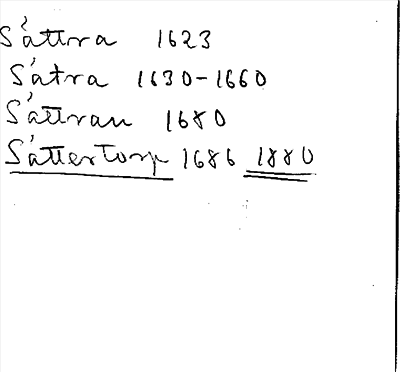 Såttra 1623
Såtra 1630-1660
Såttran 1680
Såttertorp 1686 1880